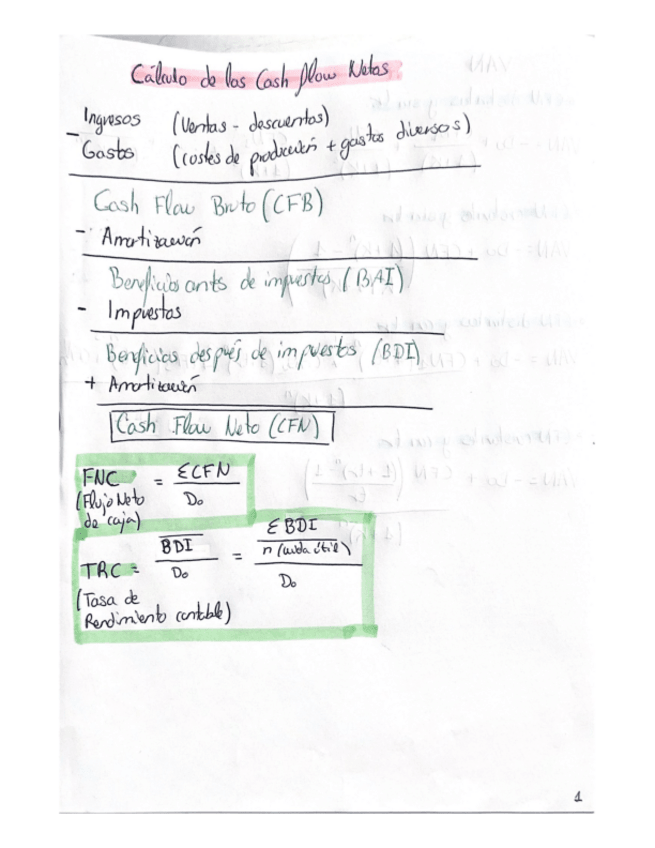 Cálculo de los Cash flow Netos
Ingresos (Ventas - descuentos)
- Gastos (costes de producción + gastos diversos)
Cash Flow Bruto (CFB)
- Amortización
Beneficios ants de impuestos (BAI)
- Impuestos
Beneficios después de impuestos (BDI)
+ Amortización
Cash Flow Neto (CFN)
FNC = ΣCFN / Do
(Flujo Neto
de caja)
TRC = BDI / Do = Σ BDI / n (vida útil) / Do
(Tasa de
Rendimiento contable)
1